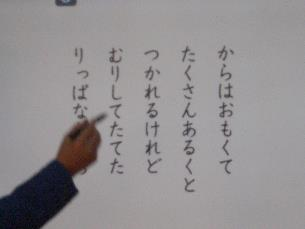 からはおもくて
たくさんあるくと
つかれるけれど
むりしてたてた
りっぱな